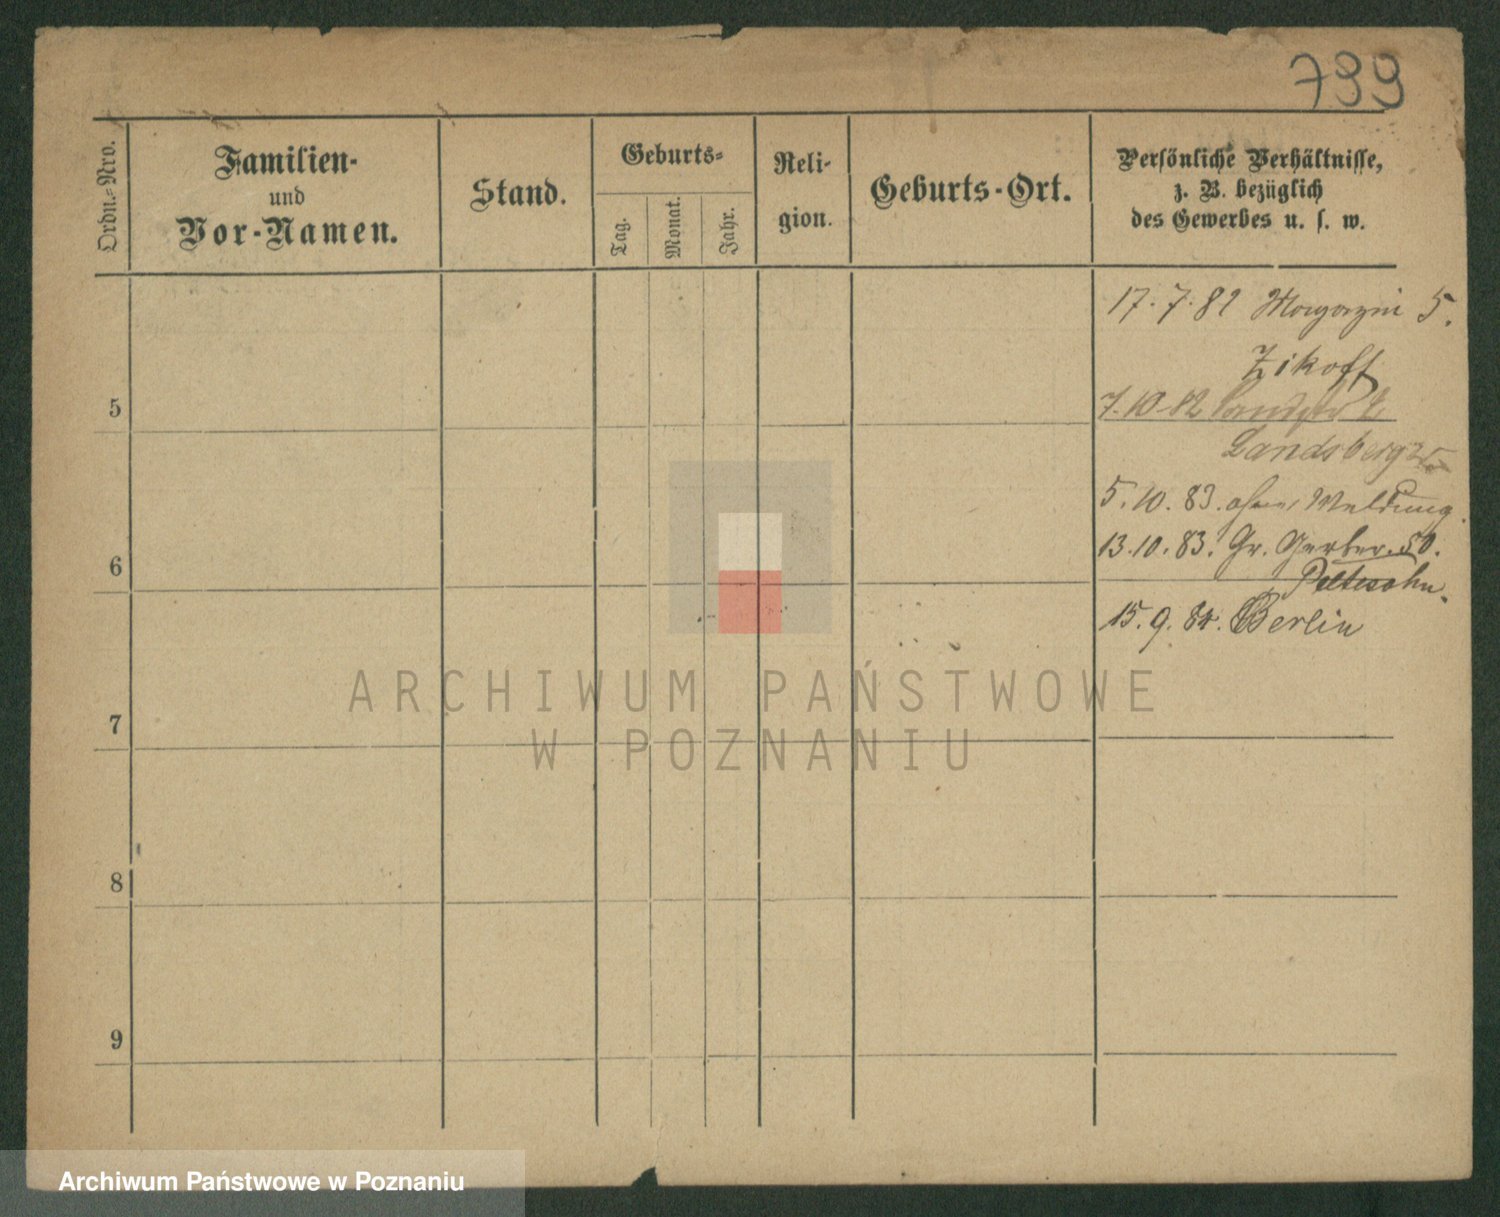 799
Ordn.-Nro.
Familien-
und
Vor-Namen.
Stand.
Geburts-
Tag.
Monat.
Jahr.
Reli-
gion.
Geburts-Ort.
Persönliche Verhältnisse,
z. B. bezüglich
des Gewerbes u. s. w.
17. 7. 82 Magazin 5.
Zikoff
5
7.10.82
Landsberger
5. 10. 83. ohne Meldung.
13.10.83. Gr. Gerber. 50.
6
Peltesohn.
15. 9. 84. Berlin
7
8
9
ARCHIWUM PAŃSTWOWE
W POZNANIU
Archiwum Państwowe w Poznaniu